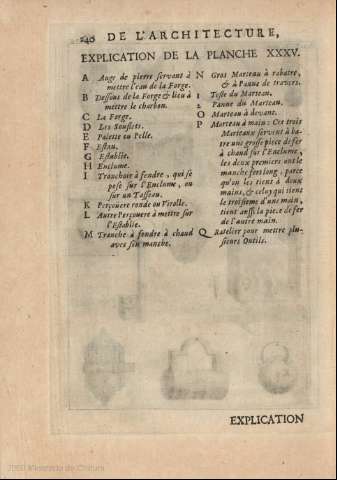 240 DE L'ARCHITECTURE,
EXPLICATION DE LA PLANCHE XXXV.
A Auge de pierre servant à
mettre l'eau de la Forge.
B Dessous de la Forge & lieu à
mettre le charbon.
C La Forge.
D Les Soufflets.
E Palette ou Pelle.
F Estau.
G Establie.
H Enclume.
I Tranchoir à fendre, qui se
pose sur l'Enclume, ou
sur un Tasseau.
K Perçouere ronde ou Virolle.
L Autre Perçouere à mettre sur
l'Establie.
M Tranche à fendre à chaud
avec son manche.
N Gros Marteau à rabatre,
& à Panne de travers.
1 Teste du Marteau.
2 Panne du Marteau.
O Marteau à devant.
P Marteau à main: Ces trois
Marteaux servent à ba-
tre une grosse piece de fer
à chaud sur l'Enclume,
les deux premiers ont le
manche fort long, parce
qu'on les tient à deux
mains, & celuy qui tient
le troisiéme d'une main,
tient aussi la piece de fer
de l'autre main.
Q Ratelier pour mettre plu-
sieurs Outils.
EXPLICATION
Ministerio de Cultura